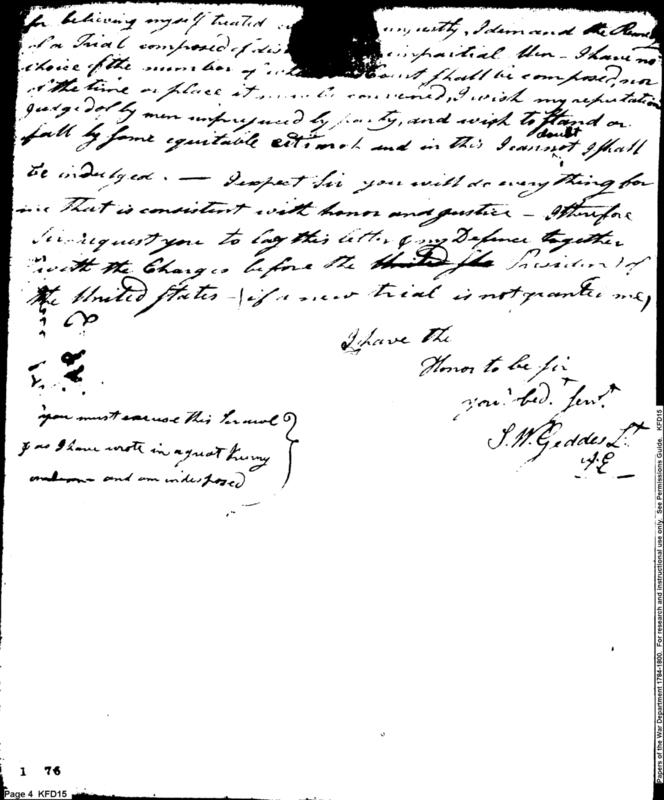 for believing myself treated unjustly, I demand the
of a Trial composed of impartial Men - I have no
choice of the number of Court shall be composed, nor
of the time or place it convened, I wish my reputation
Judged of by men unprejuced by party, and wish to Stand or
fall by some equitable and in this I cannot doubt I shall
be indulged. — I expect Sir you will do everything for
me that is consistent with honor and justice - I therefore
Sir request you to lay this letter & my Defence together
with the Charges before the United Sta President of
the United States - if a new trial is not granted me,
I have the
Honor to be Sir
your. bed.t Servt.
S. W. Geddes Lt.
A&E
you must excuse this Scrawl
& as I have wrote in a great hurry
and am indisposed
1 76
Page 4 KFD15
Papers of the War Department 1784-1800. For research and instructional use only. See Permissions Guide. KFD15